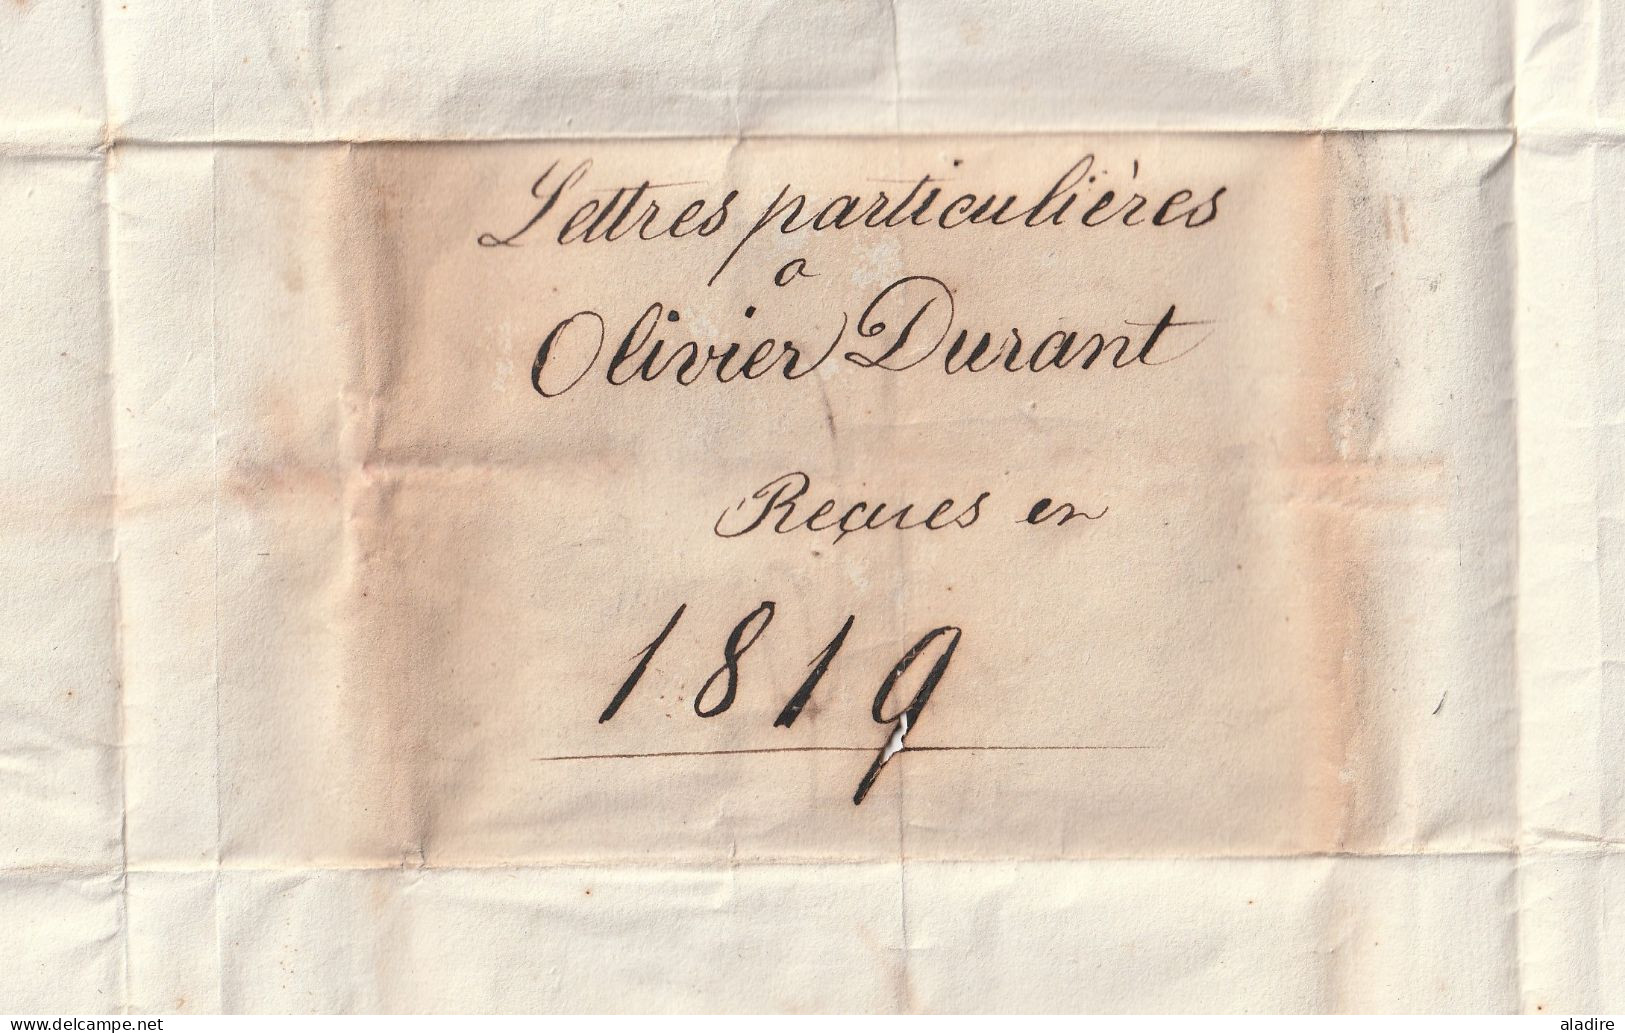 Lettres particulières
a
Olivier Durant
Reçues en
1819
delcampe.net
aladire